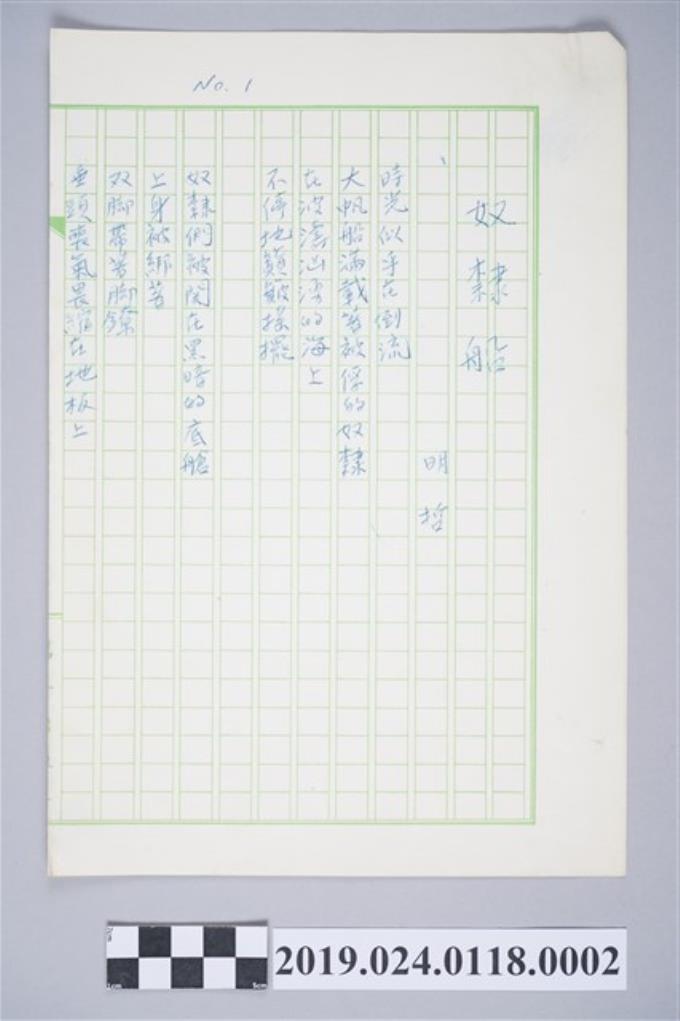 No. 1
奴隸船
明哲
時光似乎在倒流
大帆船滿載著被俘的奴隸
在波濤汹湧的海上
不停地顛皺搖擺
奴隸們被関在黑暗的底艙
上身被綁著
双脚带著脚鐐
垂頭喪氣畏縮在地板上
2019.024.0118.0002